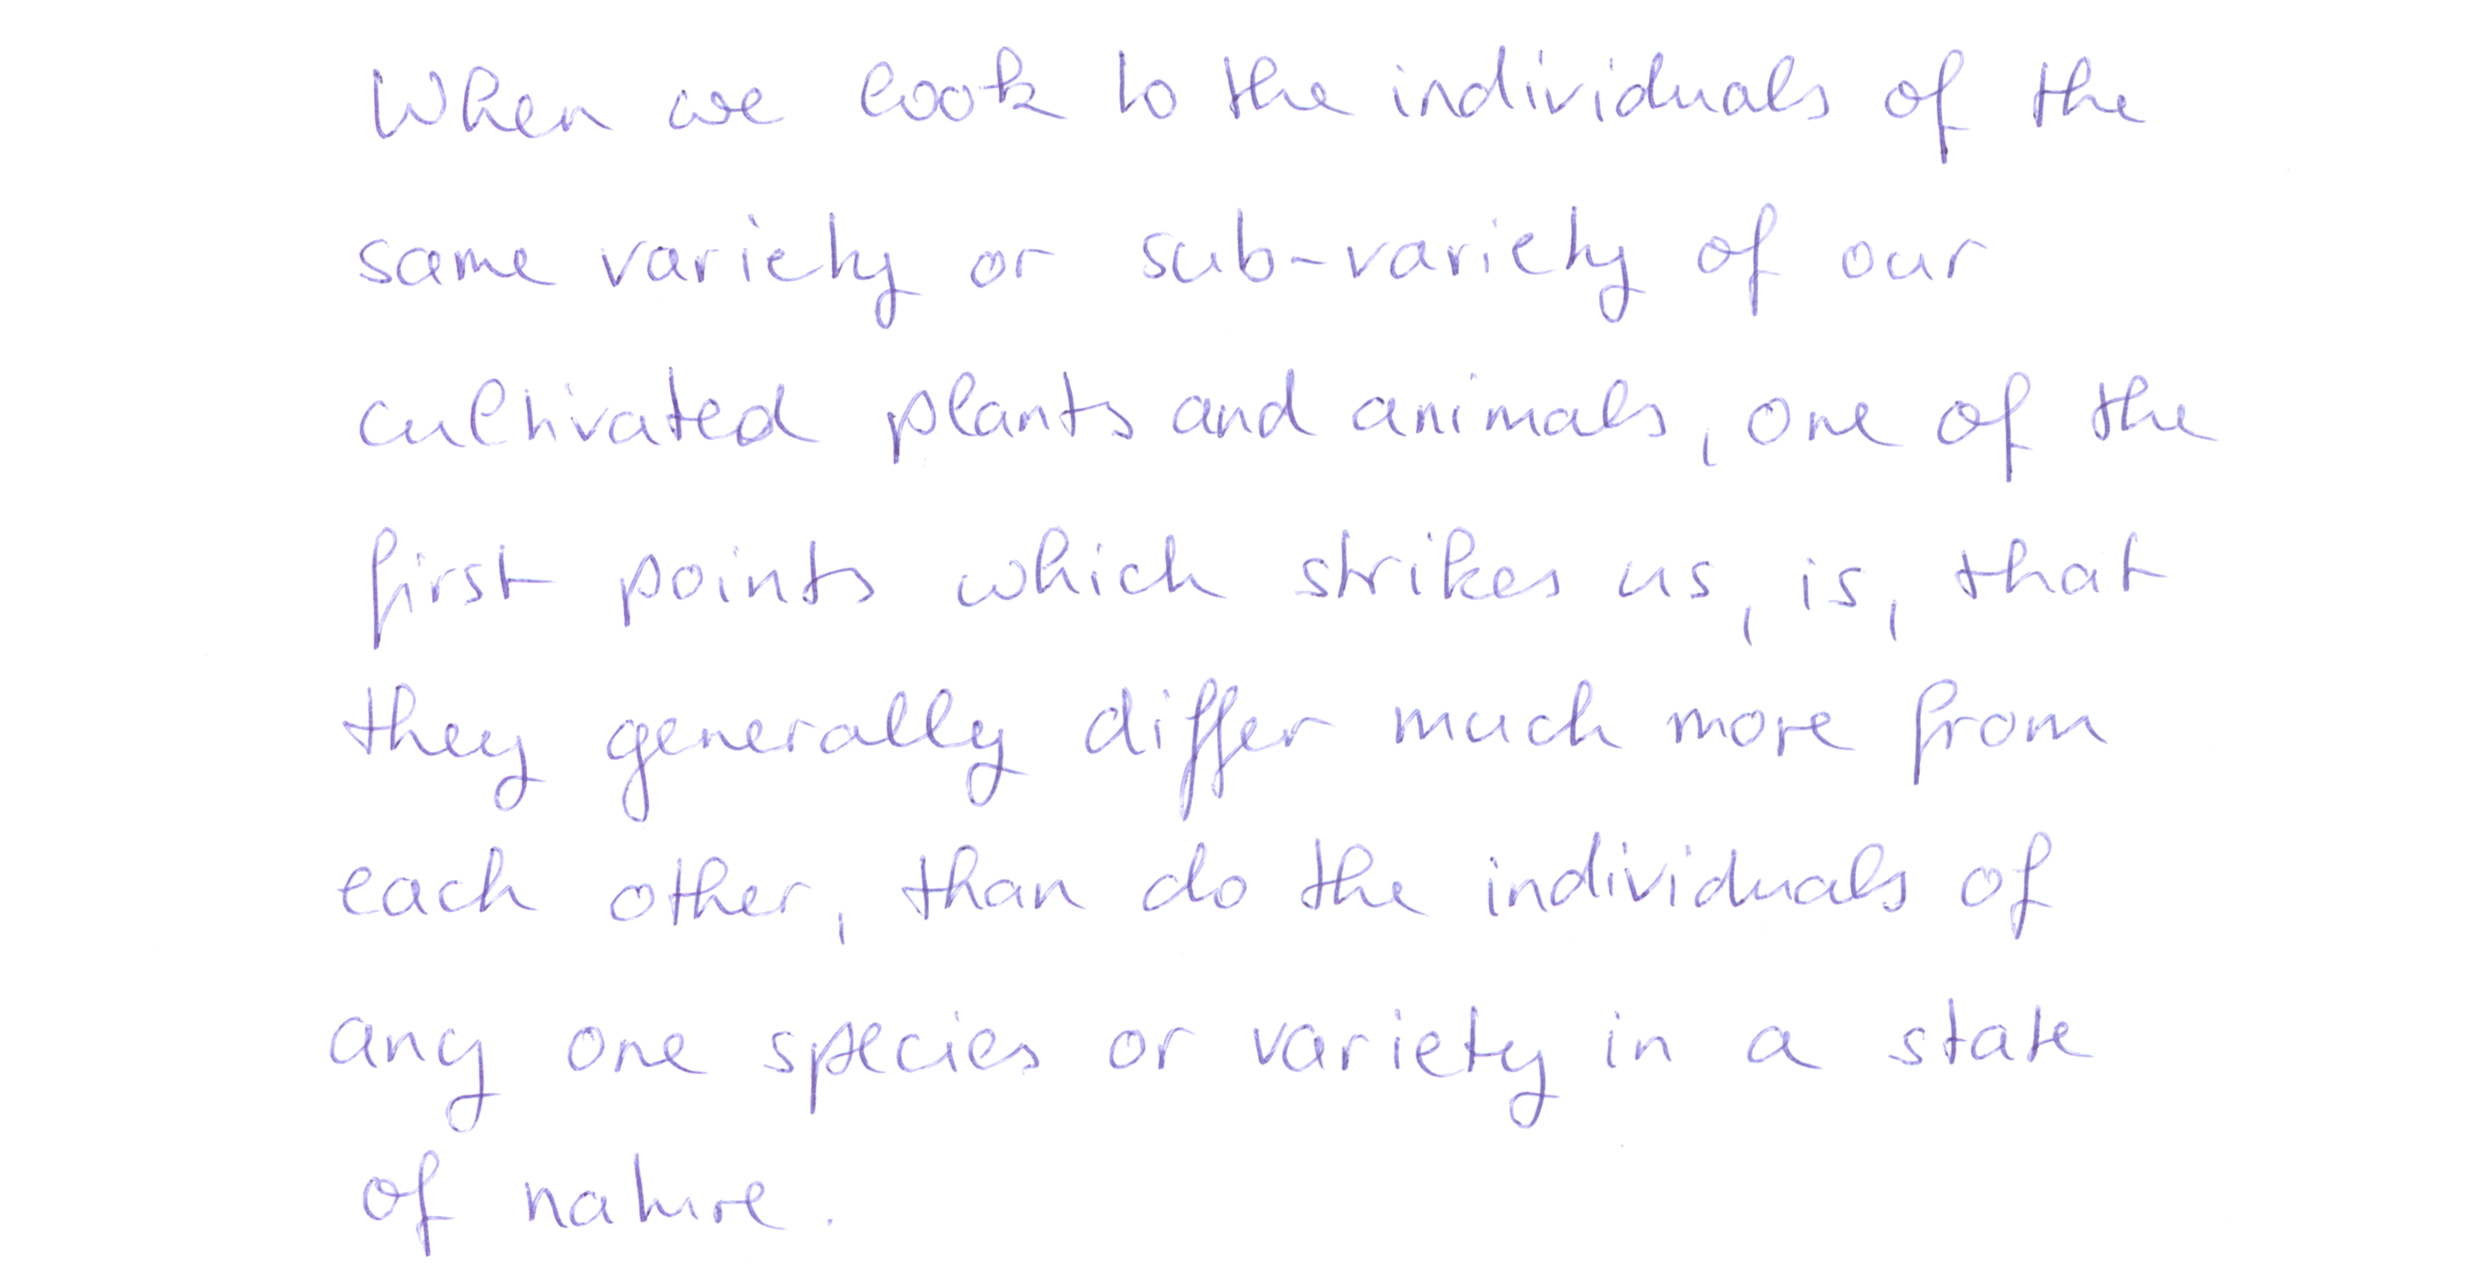 When we look to the individuals of the
same variety or sub-variety of our
cultivated plants and animals, one of the
first points which strikes us, is, that
they generally differ much more from
each other, than do the individuals of
any one species or variety in a state
of nature.